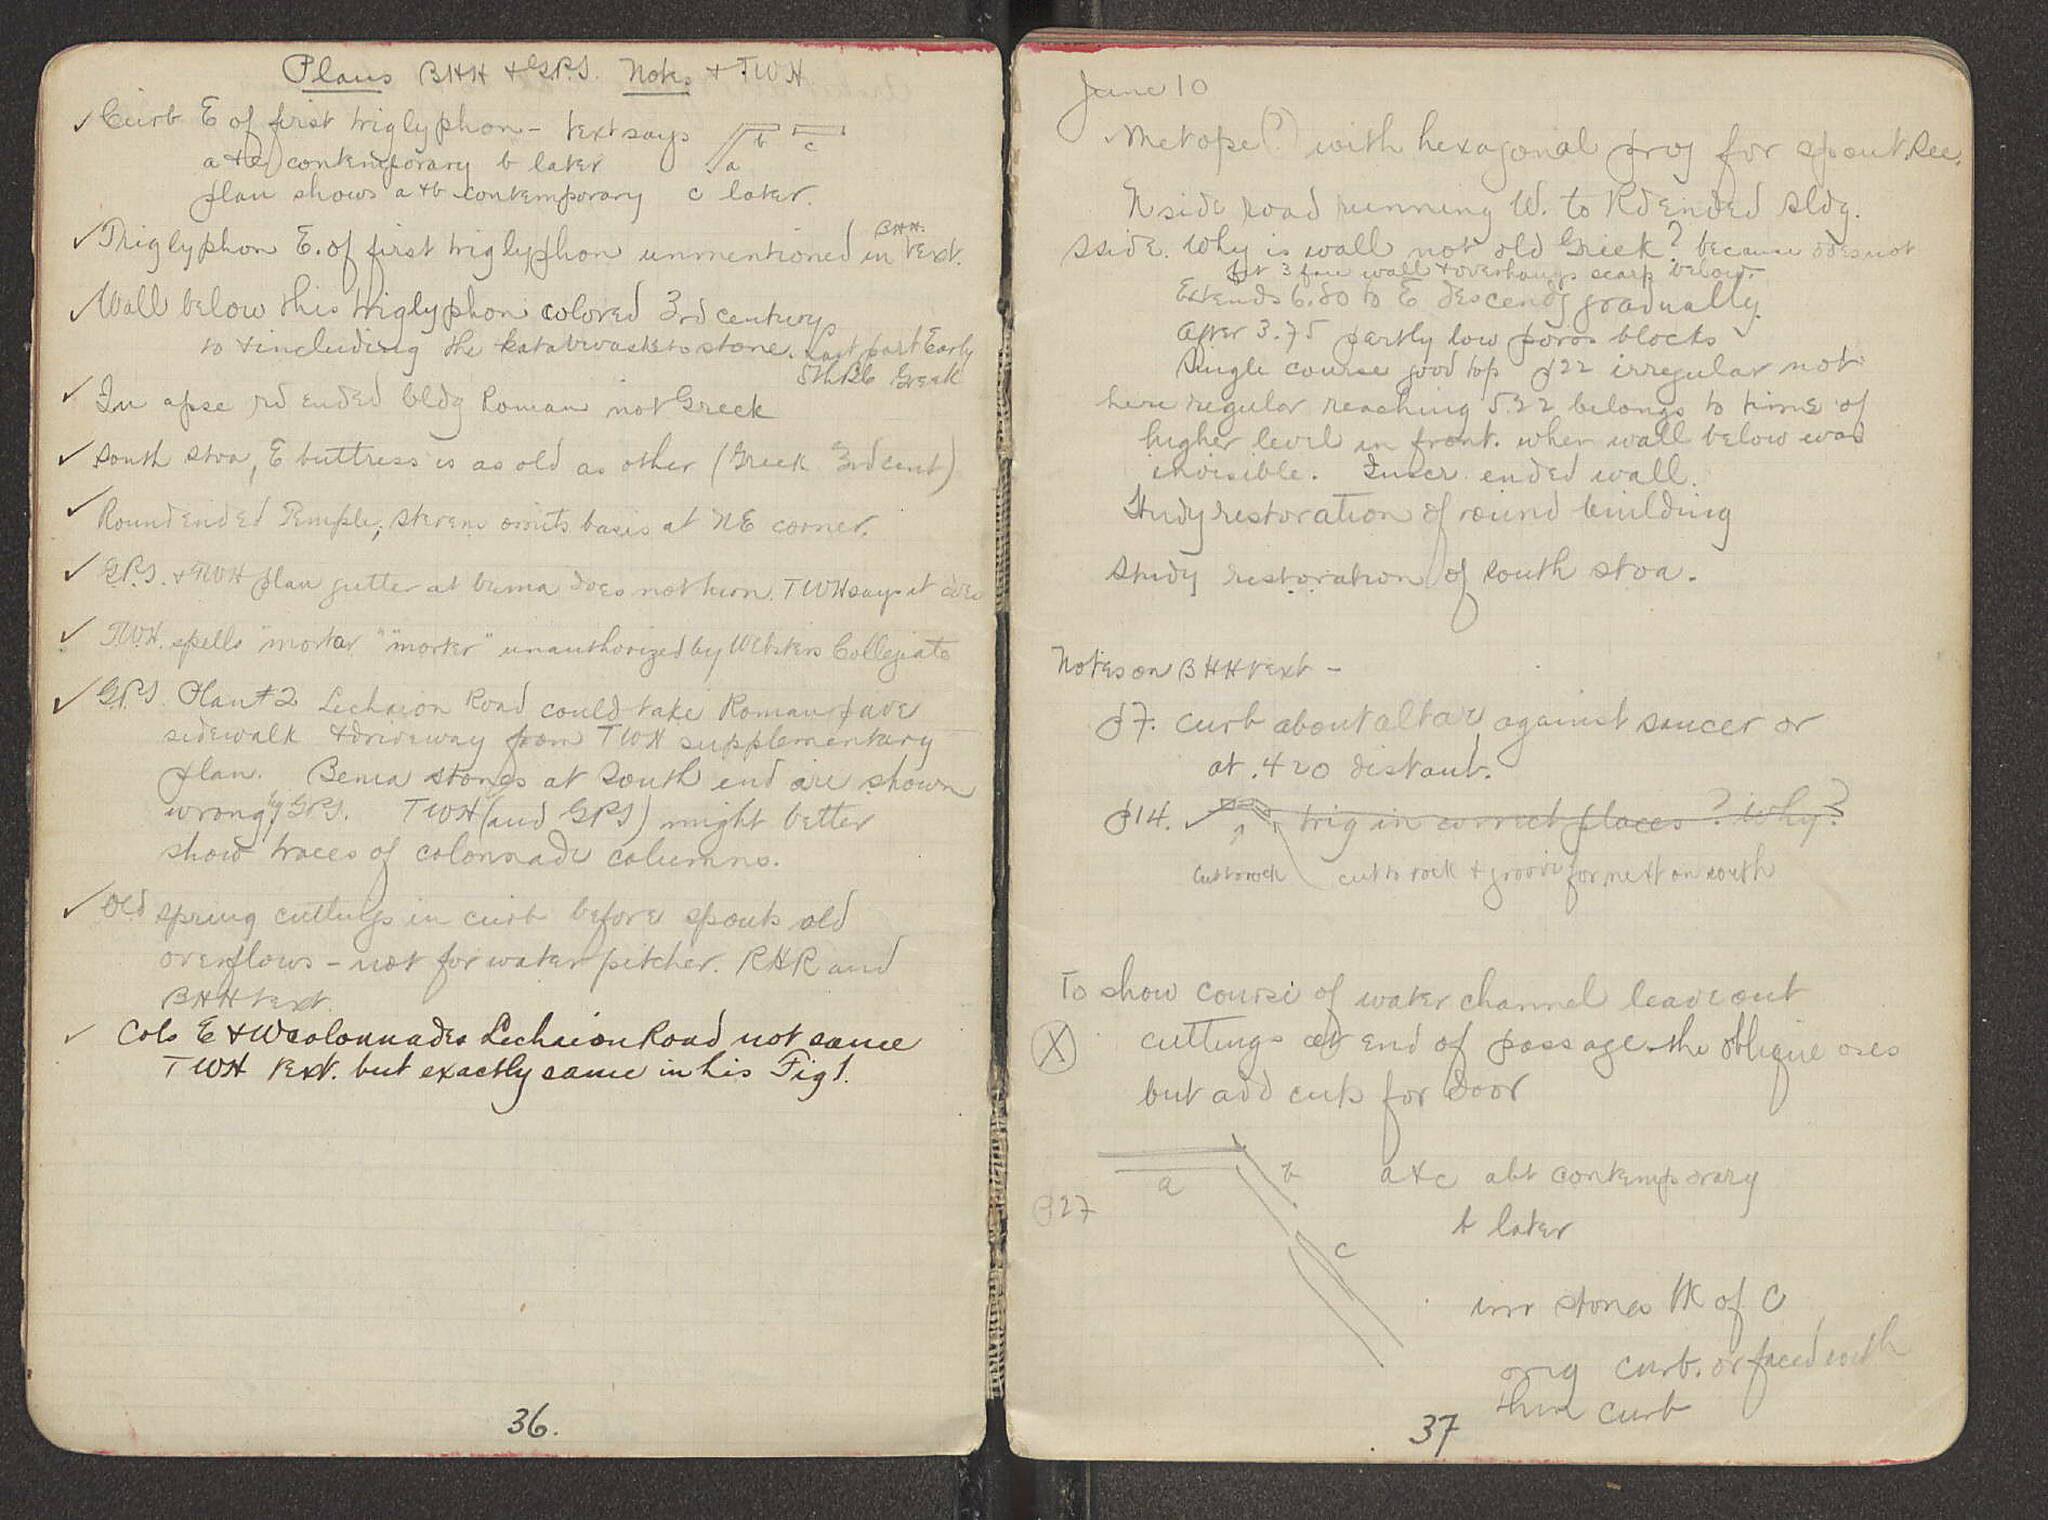 Plans BHH + G.P.S. Notes + T.W.H
✓ Curb E of first triglyphon – text says
a + c contemporary b later
a b c
plan shows a + b contemporary c later.
✓ Triglyphon E. of first triglyphon unmentioned in BHH. text.
✓ Wall below this triglyphon colored 3rd century
to + including the stone. Last part Early
5th Greek
✓ In apse rd ended bldg Roman not Greek
✓ South Stoa, E buttress is as old as other (Greek 3rd cent)
✓ Round ended Temple; Stevens omits basis at NE corner.
✓ G.P.S. + TWH plan gutter at bema does not turn. TWH says it does
✓ T.W.H. spells "mortar" "morter" unauthorized by Websters Collegiate
✓ G.P.S. Plan #2 Lechaion Road could take Roman pave
sidewalk + driveway from TWH supplementary
plan. Bema stones at South end are shown
wrong by GPS. TWH (and GPS) might better
show traces of colonnade columns.
✓ Old spring cuttings in curb before spouts old
overflows – not for water pitcher. RHR and
BHH text.
✓ Cols E + W colonnades Lechaion Road not same
TWH text. but exactly same in his Fig 1.
36.
June 10
Metope (?) with hexagonal proj for spout. See.
N side road running W. to Rd Ended Bldg.
S side. Why is wall not old Greek? because does not
fine wall + overhangs scarp below.
Extends 6.80 to E descends gradually.
After 3.75 partly low poros blocks
Single course good top p 22 irregular not
here regular reaching 5.22 belongs to time of
higher level in front. when wall below was
invisible. ended wall.
Study restoration of round building
Study restoration of South Stoa.
Notes on BHH text –
p 7. curb about altar, against saucer or
at .420 distant.
p 14. ✓ trig in correct places? Why?
cut to rock cut to rock + groove for next on south
To show course of water channel leave out
(X) cuttings at end of passage. the oblique ones
but add cuts for door
a b a + c abt contemporary
p 27
b later
c
irr stones W of C
orig curb. or faced with
thin curb
37